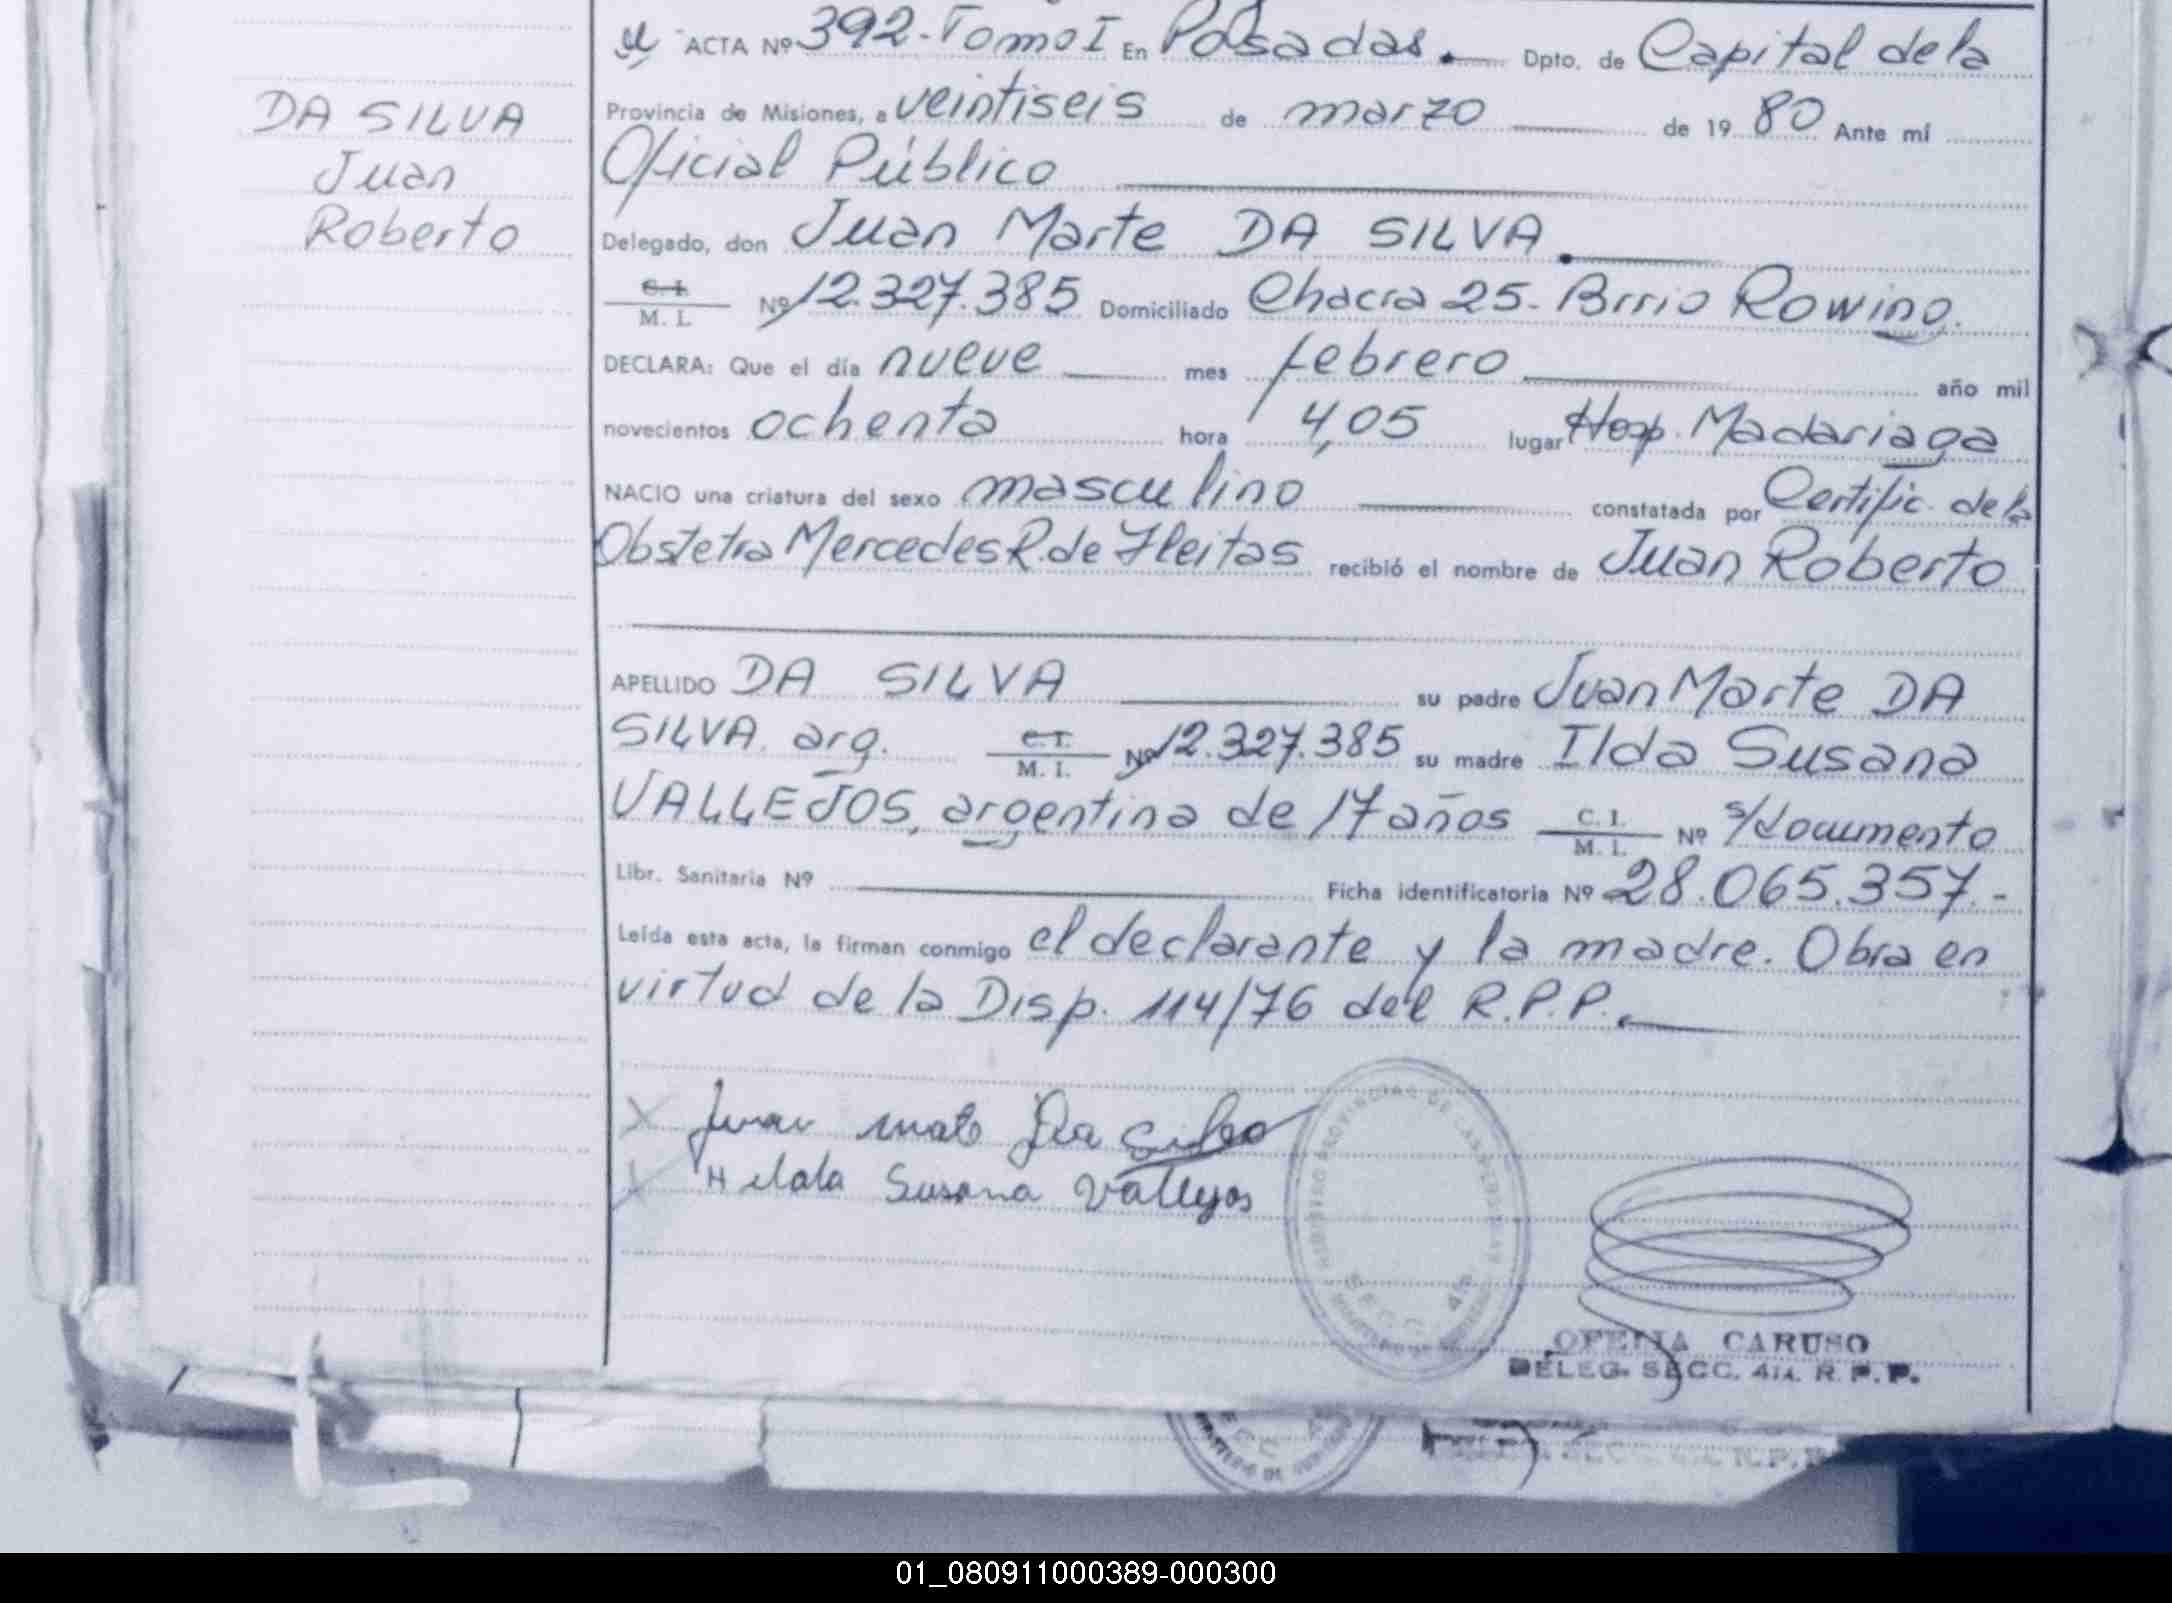 ACTA Nº 392-Tomo I En Posadas. Dpto. de Capital de la
DA SILVA
Juan
Roberto
Provincia de Misiones, a veintiseis de marzo de 1980 Ante mí
Oficial Público
Delegado, don Juan Marte DA SILVA.
C. I.
M. I. Nº 12.327.385 Domiciliado Chacra 25- Brrio Rowino.
DECLARA: Que el día nueve mes febrero año mil
novecientos ochenta hora 4,05 lugar Hosp. Madariaga
NACIO una criatura del sexo masculino constatada por Certific. de la
Obstetra Mercedes R. de Fleitas recibió el nombre de Juan Roberto
APELLIDO DA SILVA su padre Juan Marte DA
SILVA. arg. C. I. M. I. Nº 12.327.385 su madre Ilda Susana
VALLEJOS, argentina de 17 años C. I. M. I. Nº s/documento
Libr. Sanitaria Nº Ficha identificatoria Nº 28.065.357.-
Leída esta acta, la firman conmigo el declarante y la madre. Obra en
virtud de la Disp. 114/76 del R.P.P.
X Juan mate Da Silva
X Hilda Susana Vallejos
REGISTRO PROVINCIAL DE LAS PERSONAS
SECC. 4ta
OFELIA CARUSO
DELEG. SECC. 4ta. R. P. P.
01_080911000389-000300